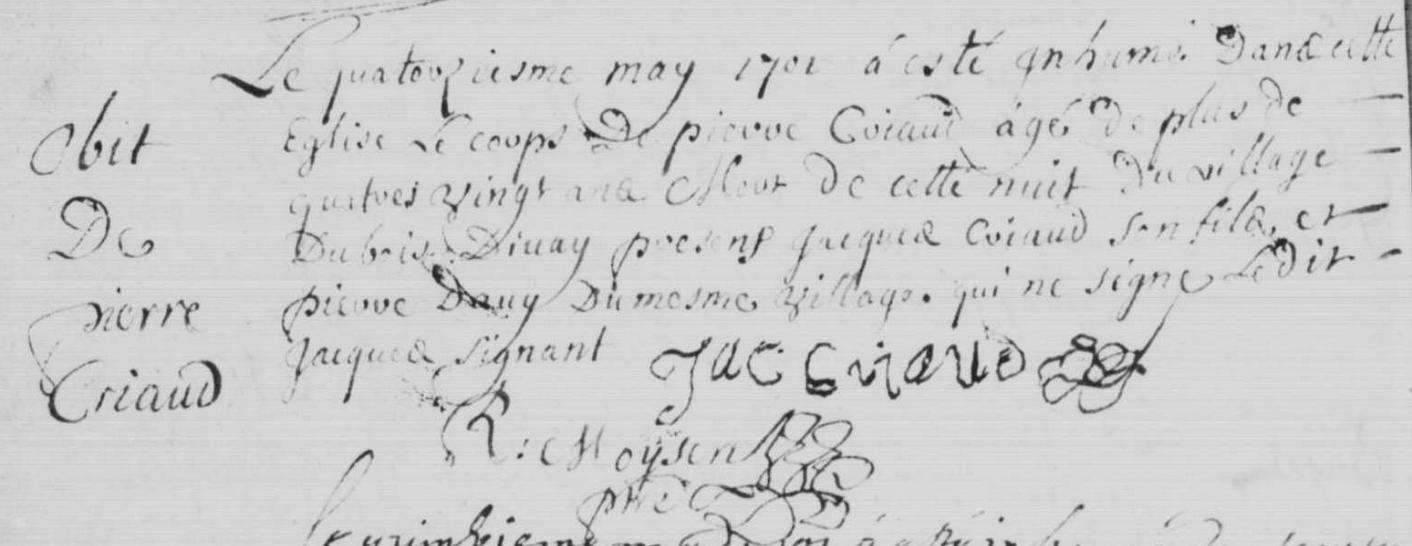 Obit
De
pierre
Criaud
Le quatorziesme may 1701 á esté Inhumé Dans cette
Eglise Le corps De pierre Criaud âgé de plus de
quatres vingt ans Mort de cette nuit Du village
Du bois Divay presens Jacques Criaud son fils, et
pierre Davy Du mesme village. qui ne signe Ledit
Jacques signant JAC CRIAUD
R: Moÿsen
ptre